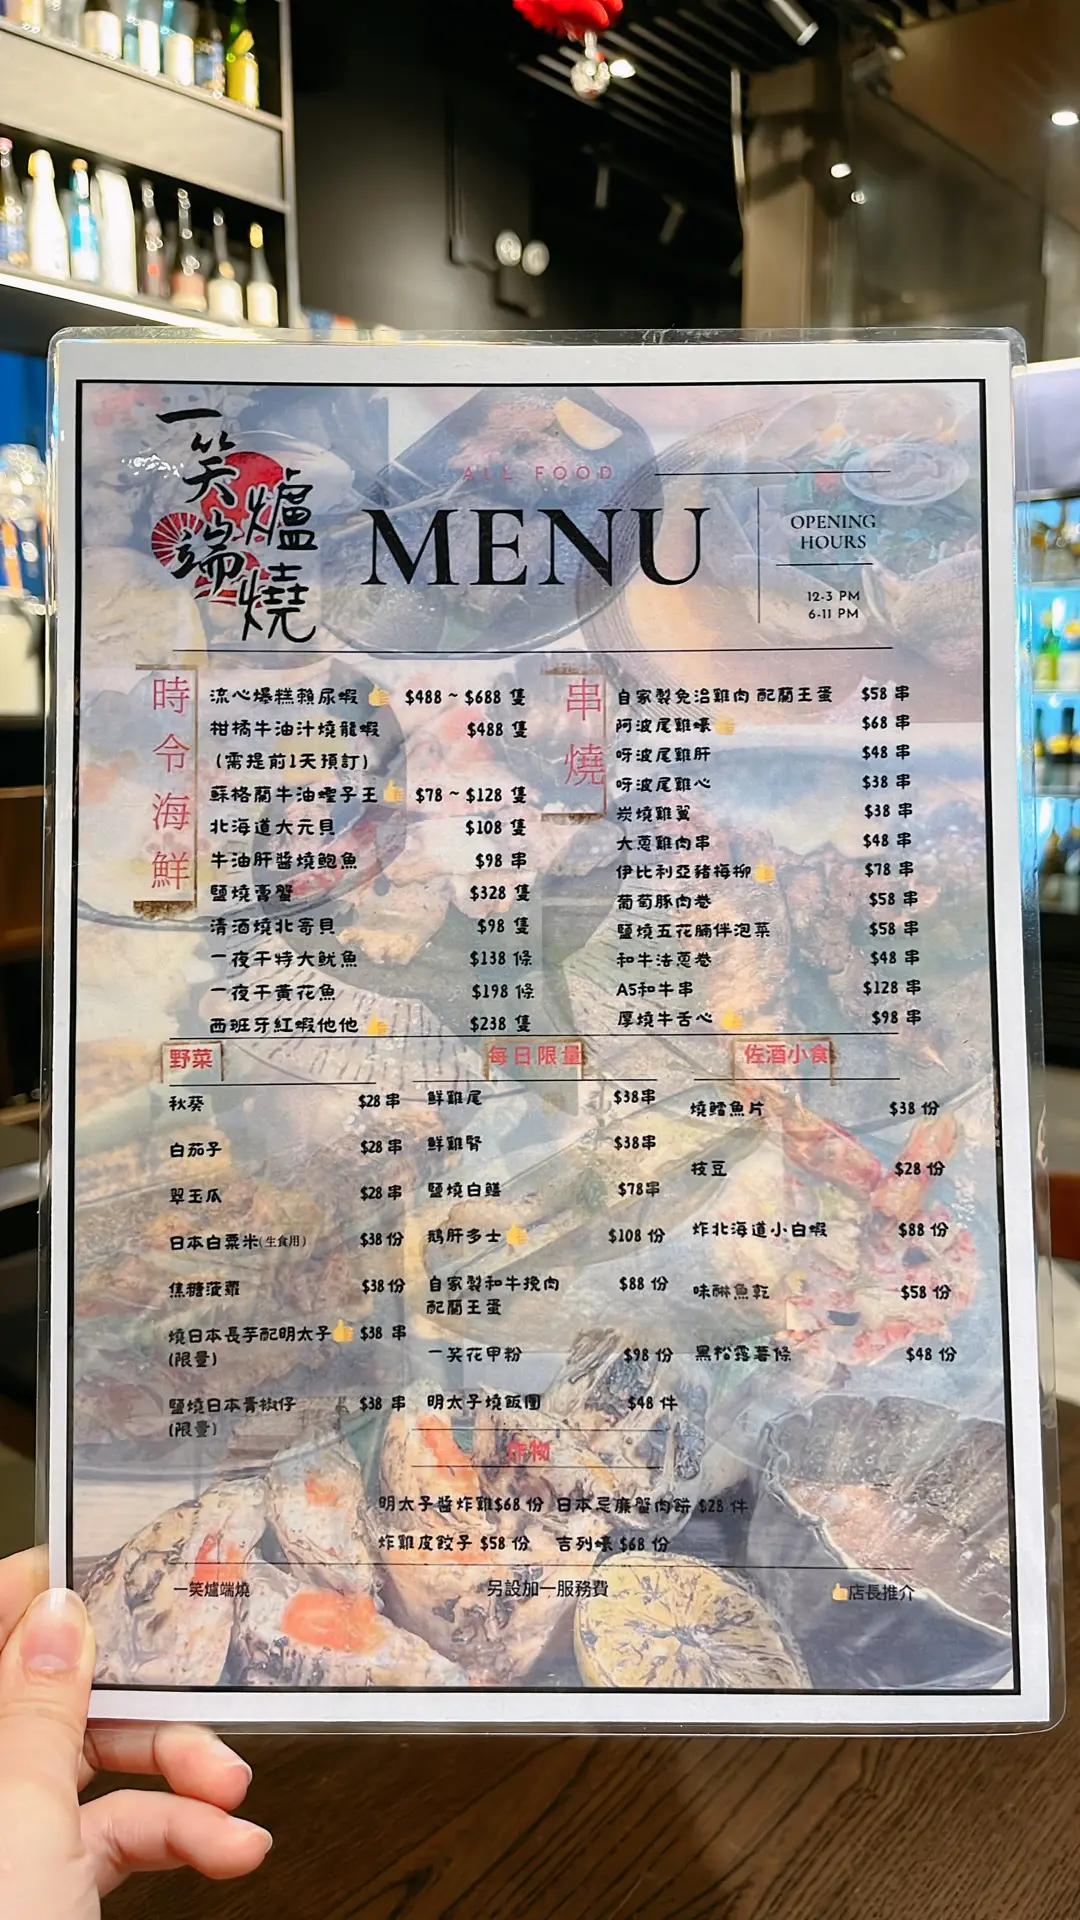 一笑爐端燒
ALL FOOD
MENU
OPENING
HOURS
12-3 PM
6-11 PM
時令海鮮
流心爆糕賴尿蝦 $488 ~ $688 隻
柑橘牛油汁燒龍蝦 $488 隻
(需提前1天預訂)
蘇格蘭牛油蟶子王 $78 ~ $128 隻
北海道大元貝 $108 隻
牛油肝醬燒鮑魚 $98 串
鹽燒膏蟹 $328 隻
清酒燒北寄貝 $98 隻
一夜干特大魷魚 $138 條
一夜干黃花魚 $198 條
西班牙紅蝦他他 $238 隻
串燒
自家製免治雞肉 配蘭王蛋 $58 串
阿波尾雞蠔 $68 串
呀波尾雞肝 $48 串
呀波尾雞心 $38 串
炭燒雞翼 $38 串
大蔥雞肉串 $48 串
伊比利亞豬梅柳 $78 串
葡萄豚肉卷 $58 串
鹽燒五花腩伴泡菜 $58 串
和牛法蔥卷 $48 串
A5和牛串 $128 串
厚燒牛舌心 $98 串
野菜
秋葵 $28 串
白茄子 $28 串
翠玉瓜 $28 串
日本白粟米(生食用) $38 份
焦糖菠蘿 $38 份
燒日本長芋配明太子 $38 串
(限量)
鹽燒日本青椒仔 $38 串
(限量)
每日限量
鮮雞尾 $38串
鮮雞腎 $38串
鹽燒白鱔 $78串
鵝肝多士 $108 份
自家製和牛挽肉 $88 份
配蘭王蛋
一笑花甲粉 $98 份
明太子燒飯團 $48 件
佐酒小食
燒鱈魚片 $38 份
枝豆 $28 份
炸北海道小白蝦 $88 份
味醂魚乾 $58 份
黑松露薯條 $48 份
炸物
明太子醬炸雞$68 份 日本忌廉蟹肉餅 $28 件
炸雞皮餃子 $58 份 吉列蠔 $68 份
一笑爐端燒 另設加一服務費 店長推介